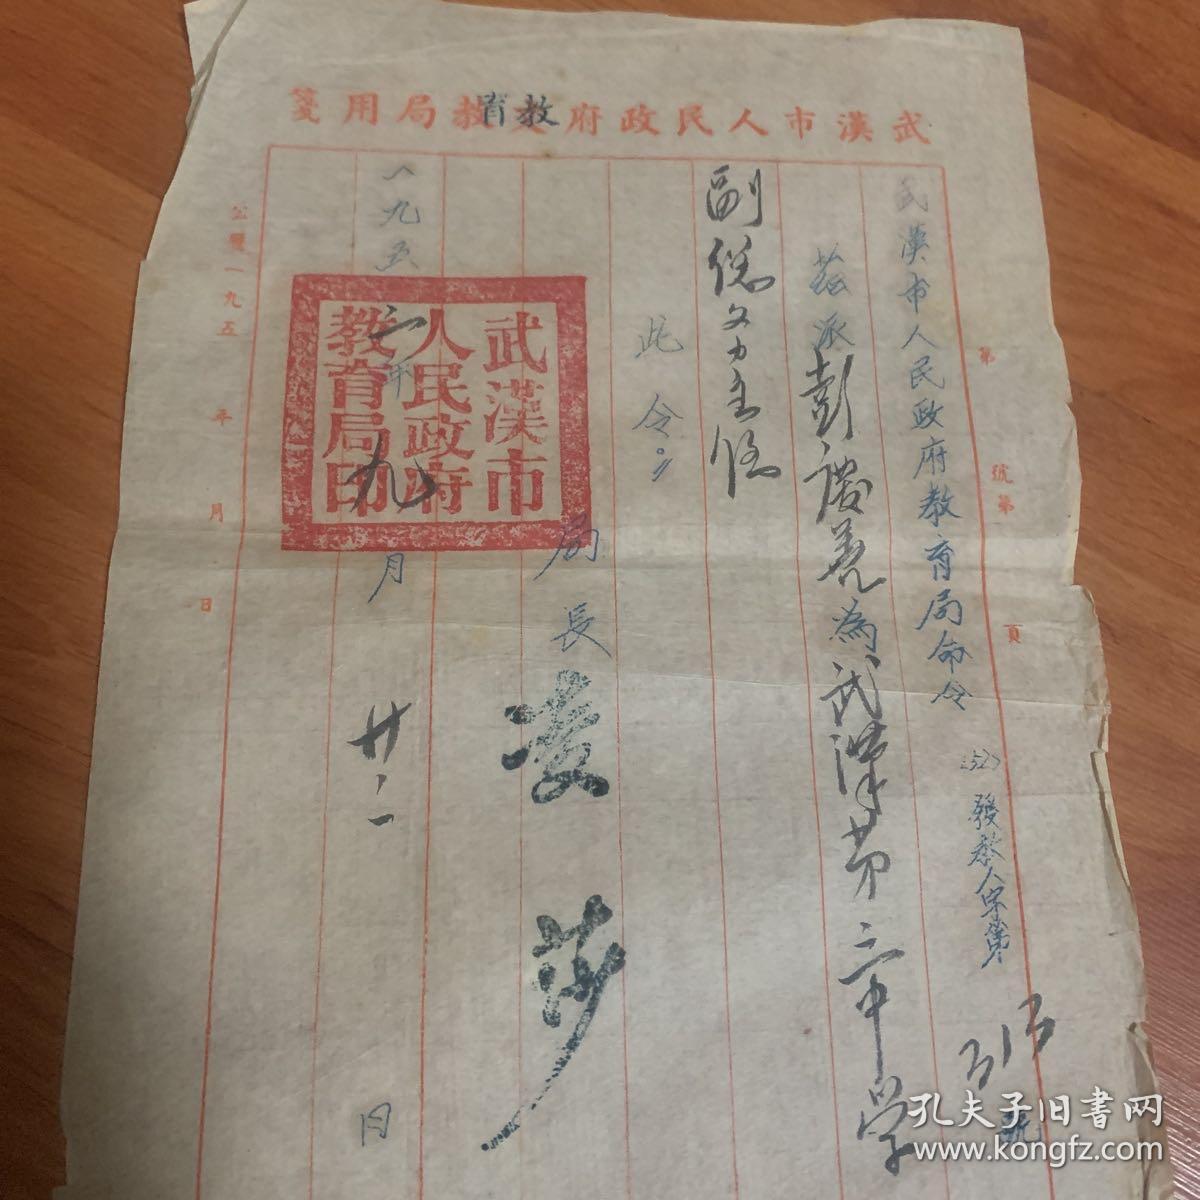 武漢市人民政府文教局用箋
教育
第 號第 頁
武漢市人民政府教育局命令
(52)發教人字第315號
茲派彭慶堯為武漢第二中学
副總务主任
此令。
局長 凌莎
一九五二年九月廿一日
武漢市
人民政府
教育局印
公曆一九五 年 月 日
孔夫子旧书网
www.kongfz.com